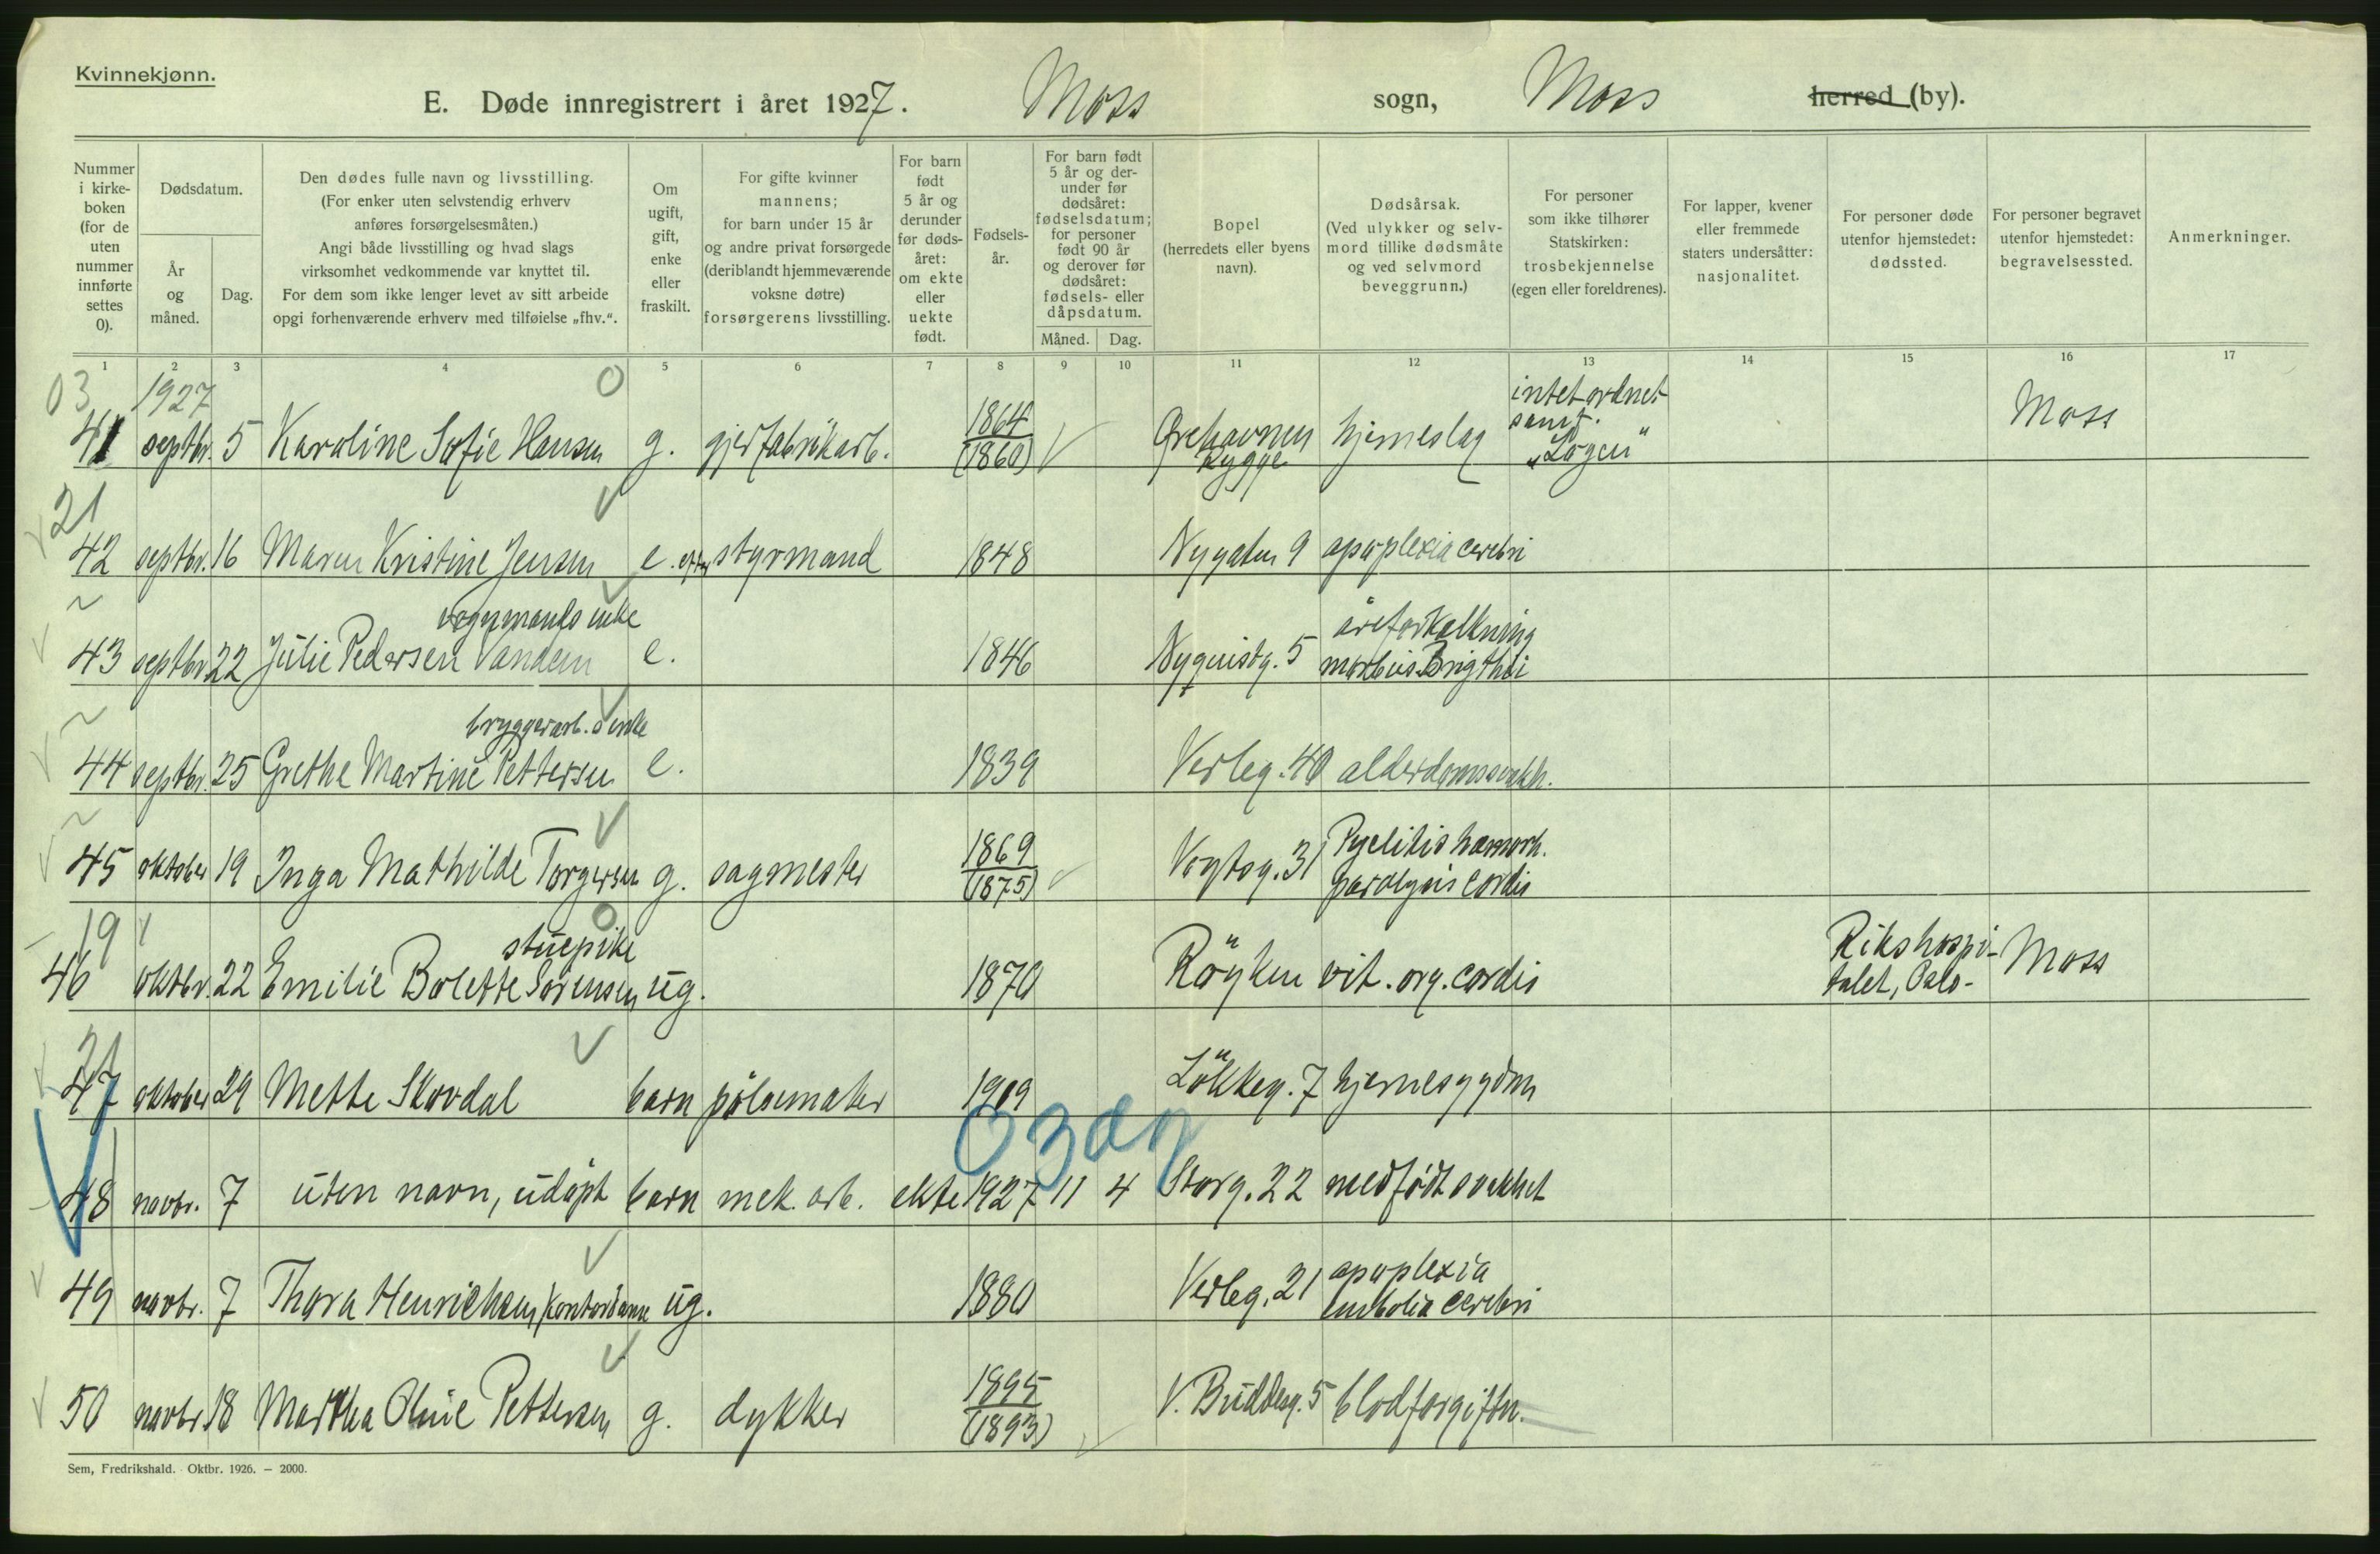 Kvinnekjønn.
E. Døde innregistrert i året 1927. Moss sogn, Moss herred (by).
Nummer i kirke-boken (for de uten nummer innførte settes 0).
Dødsdatum.
År og måned.
Dag.
Den dødes fulle navn og livsstilling.
(For enker uten selvstendig erhverv
anføres forsørgelsesmåten.)
Angi både livsstilling og hvad slags
virksomhet vedkommende var knyttet til.
For dem som ikke lenger levet av sitt arbeide
opgi forhenværende erhverv med tilføielse „fhv.“.
Om ugift, gift, enke eller fraskilt.
For gifte kvinner
mannens;
for barn under 15 år
og andre privat forsørgede
(deriblandt hjemmeværende
voksne døtre)
forsørgerens livsstilling.
For barn født 5 år og derunder før døds-året: om ekte eller uekte født.
Fødsels-år.
For barn født
5 år og der-
under før
dødsåret:
fødselsdatum;
for personer
født 90 år
og derover før
dødsåret:
fødsels- eller
dåpsdatum.
Måned. Dag.
Bopel
(herredets eller byens
navn).
Dødsårsak.
(Ved ulykker og selv-
mord tillike dødsmåte
og ved selvmord
beveggrunn.)
For personer
som ikke tilhører
Statskirken:
trosbekjennelse
(egen eller foreldrenes).
For lapper, kvener
eller fremmede
staters undersåtter:
nasjonalitet.
For personer døde
utenfor hjemstedet:
dødssted.
For personer begravet
utenfor hjemstedet:
begravelsessted.
Anmerkninger.
1 2 3 4 5 6 7 8 9 10 11 12 13 14 15 16 17
03 1927 0
41 septbr. 5 Karoline Sofie Hansen g. gjerfabrikarb. 1864 (1860) Rygge hjerneslag intet ordnet samf. „Logen“ Moss
21
42 septbr. 16 Maren Kristine Jensen e. efter styrmand 1848 Nygaten 9 apoplexia cerebri
vognmands enke
43 septbr 22 Julie Pedersen Vandem e. 1846 Nyquistg. 5 åreforkalkning morbus Brigthii
bryggeriarb.s enke
44 septbr. 25 Grethe Martine Pettersen e. 1839 Verleg. 40 alderdomssvakh.
45 oktober 19 Inga Mathilde Torgersen g. sagmester 1869 (1875) Vogtsg. 31 Pyelitis hæmorh. paralysis cordis
19 0
stuepike
46 oktbr. 22 Emilie Bolette Sörensen ug. 1870 Röyken vit. org. cordis Rikshospi-talet, Oslo- Moss
21
47 oktober 29 Mette Skovdal barn pölsemaker 1909 Lökkeg. 7 hjernesygdom
03 dg
48 novbr. 7 uten navn, udöpt barn mek. arb. ekte 1927 11 4 Storg. 22 medfödt svakhet
49 novbr. 7 Thora Henrichsen, kontordame ug. 1880 Verleg. 21 apoplexia embolia cerebri
50 novbr 18 Martha Oline Pettersen g. dykker 1895 (1893) V. Buddesg. 5 blodforgiftn.
Sem, Fredrikshald. Oktbr. 1926. — 2000.